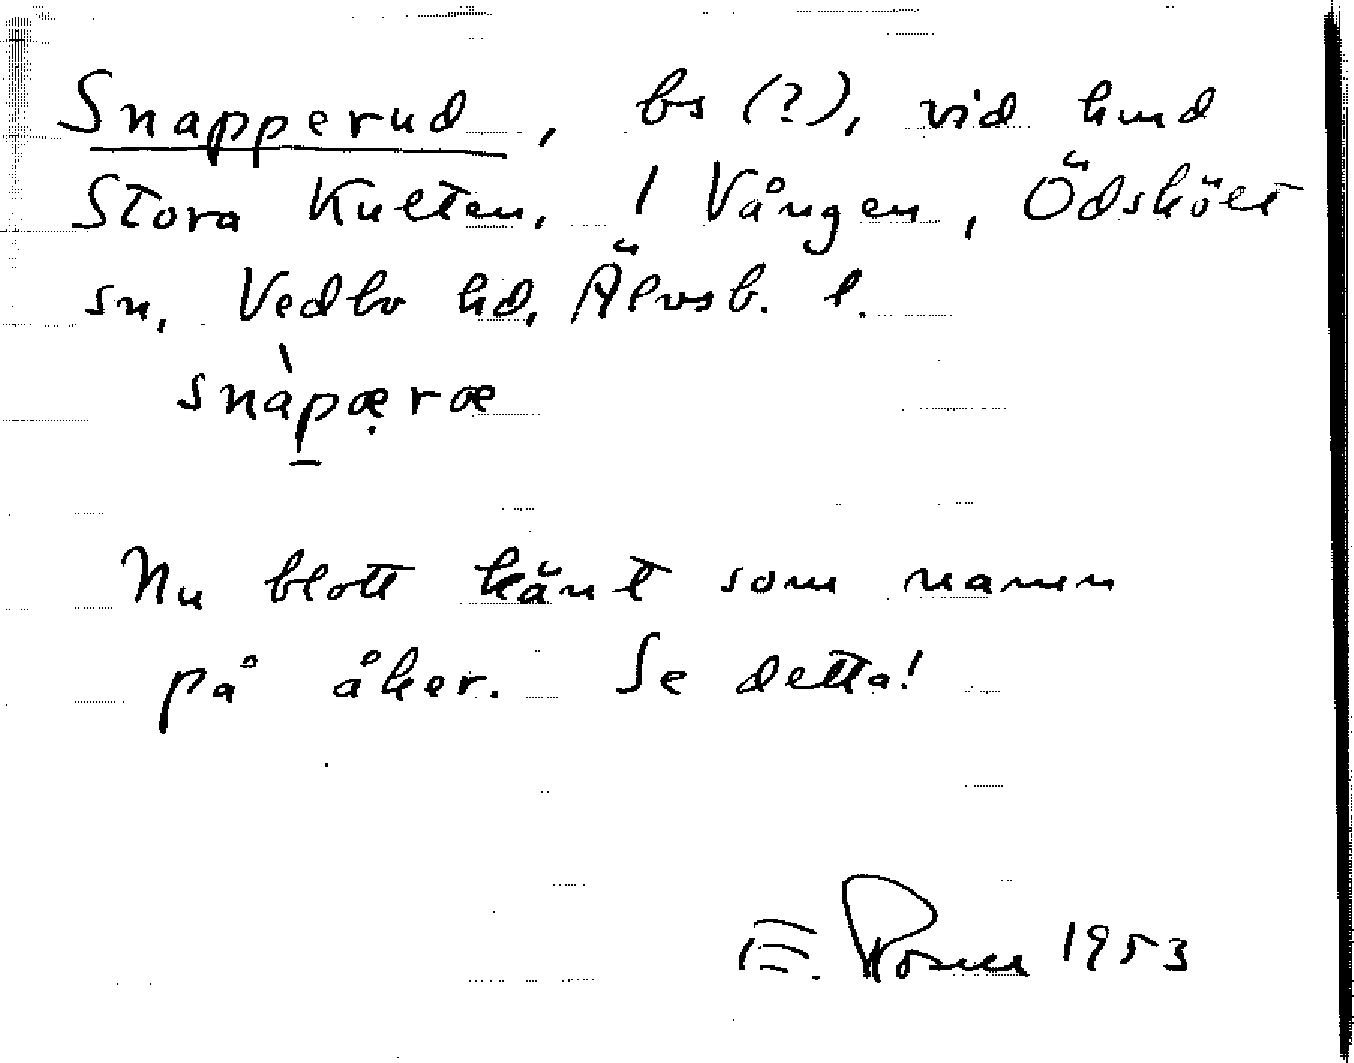 Snapperud, bs (?), vid hmd
Stora Kulten, 1 Vången, Ödskölt
sn, Vedbo hd, Älvsb. l.
snàpærœ
Nu blott känt som namn
på åker. Se detta!
E. Rosell 1953